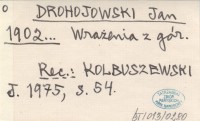 o DROHOJOWSKI Jan
1902... Wrażenia z gór.
Rec.: KOLBUSZEWSKI
J. 1975, s. 54.